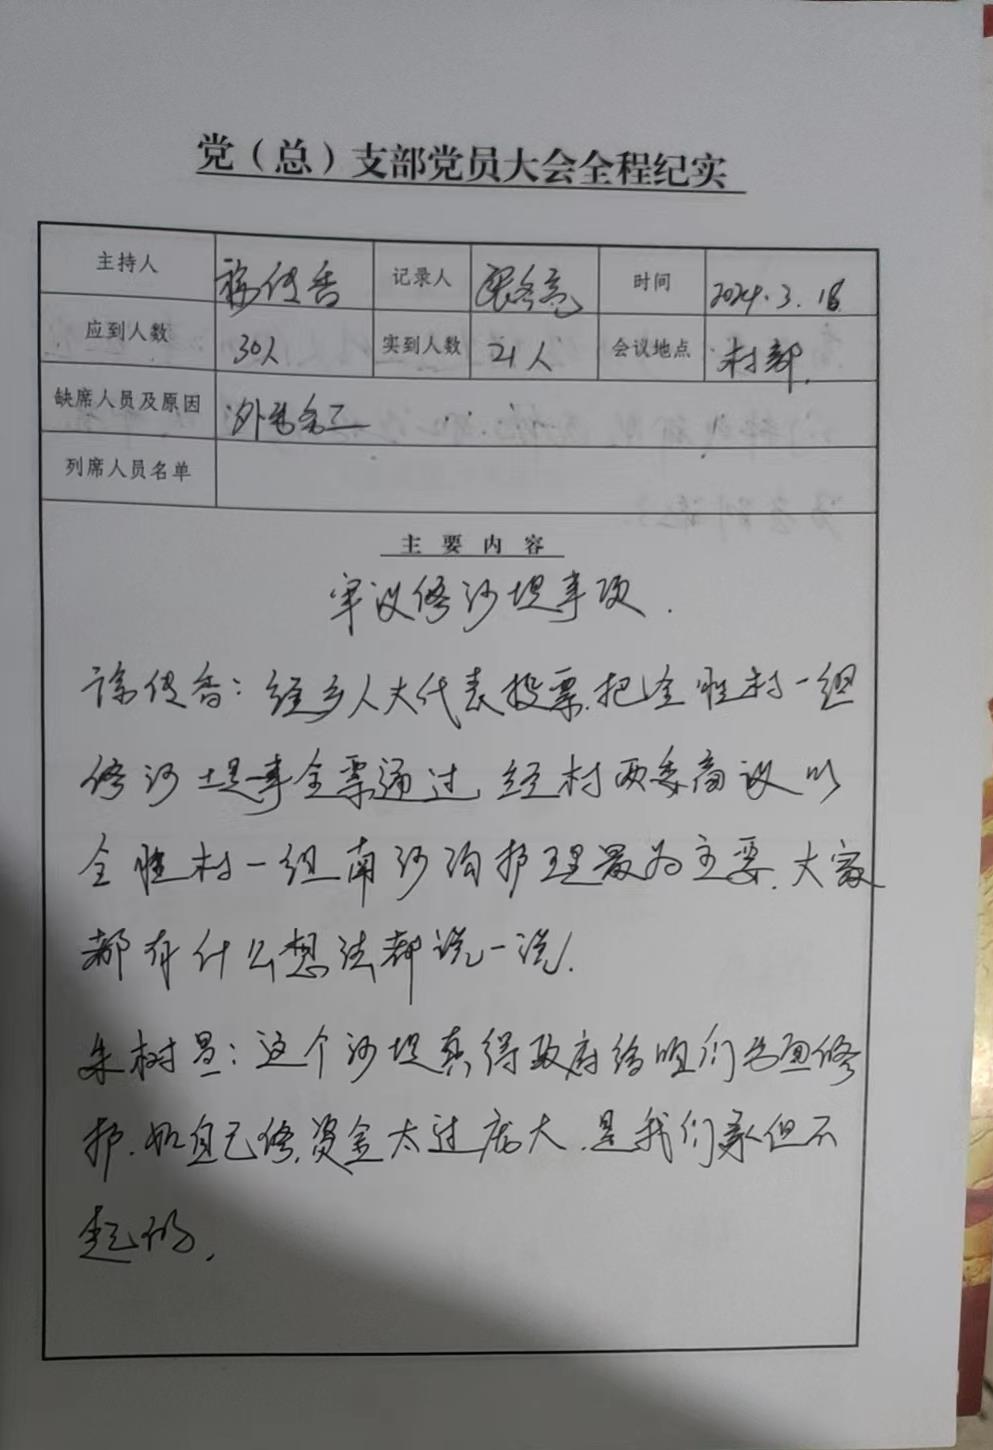 党（总）支部党员大会全程纪实
主持人 传香 记录人 时间 2024.3.18
应到人数 30人 实到人数 21人 会议地点 村部.
缺席人员及原因 外出务工
列席人员名单
主要内容
审议修河堤事项.
徐传香：经乡人大代表投票.把全胜村一组
修河堤事全票通过，经村两委商议以
全胜村一组南河沟护理最为主要.大家
都有什么想法都说一说.
朱树昌：这个河堤真得政府给咱们出面修
护.如自己修,资金太过庞大.是我们承但不
起的.